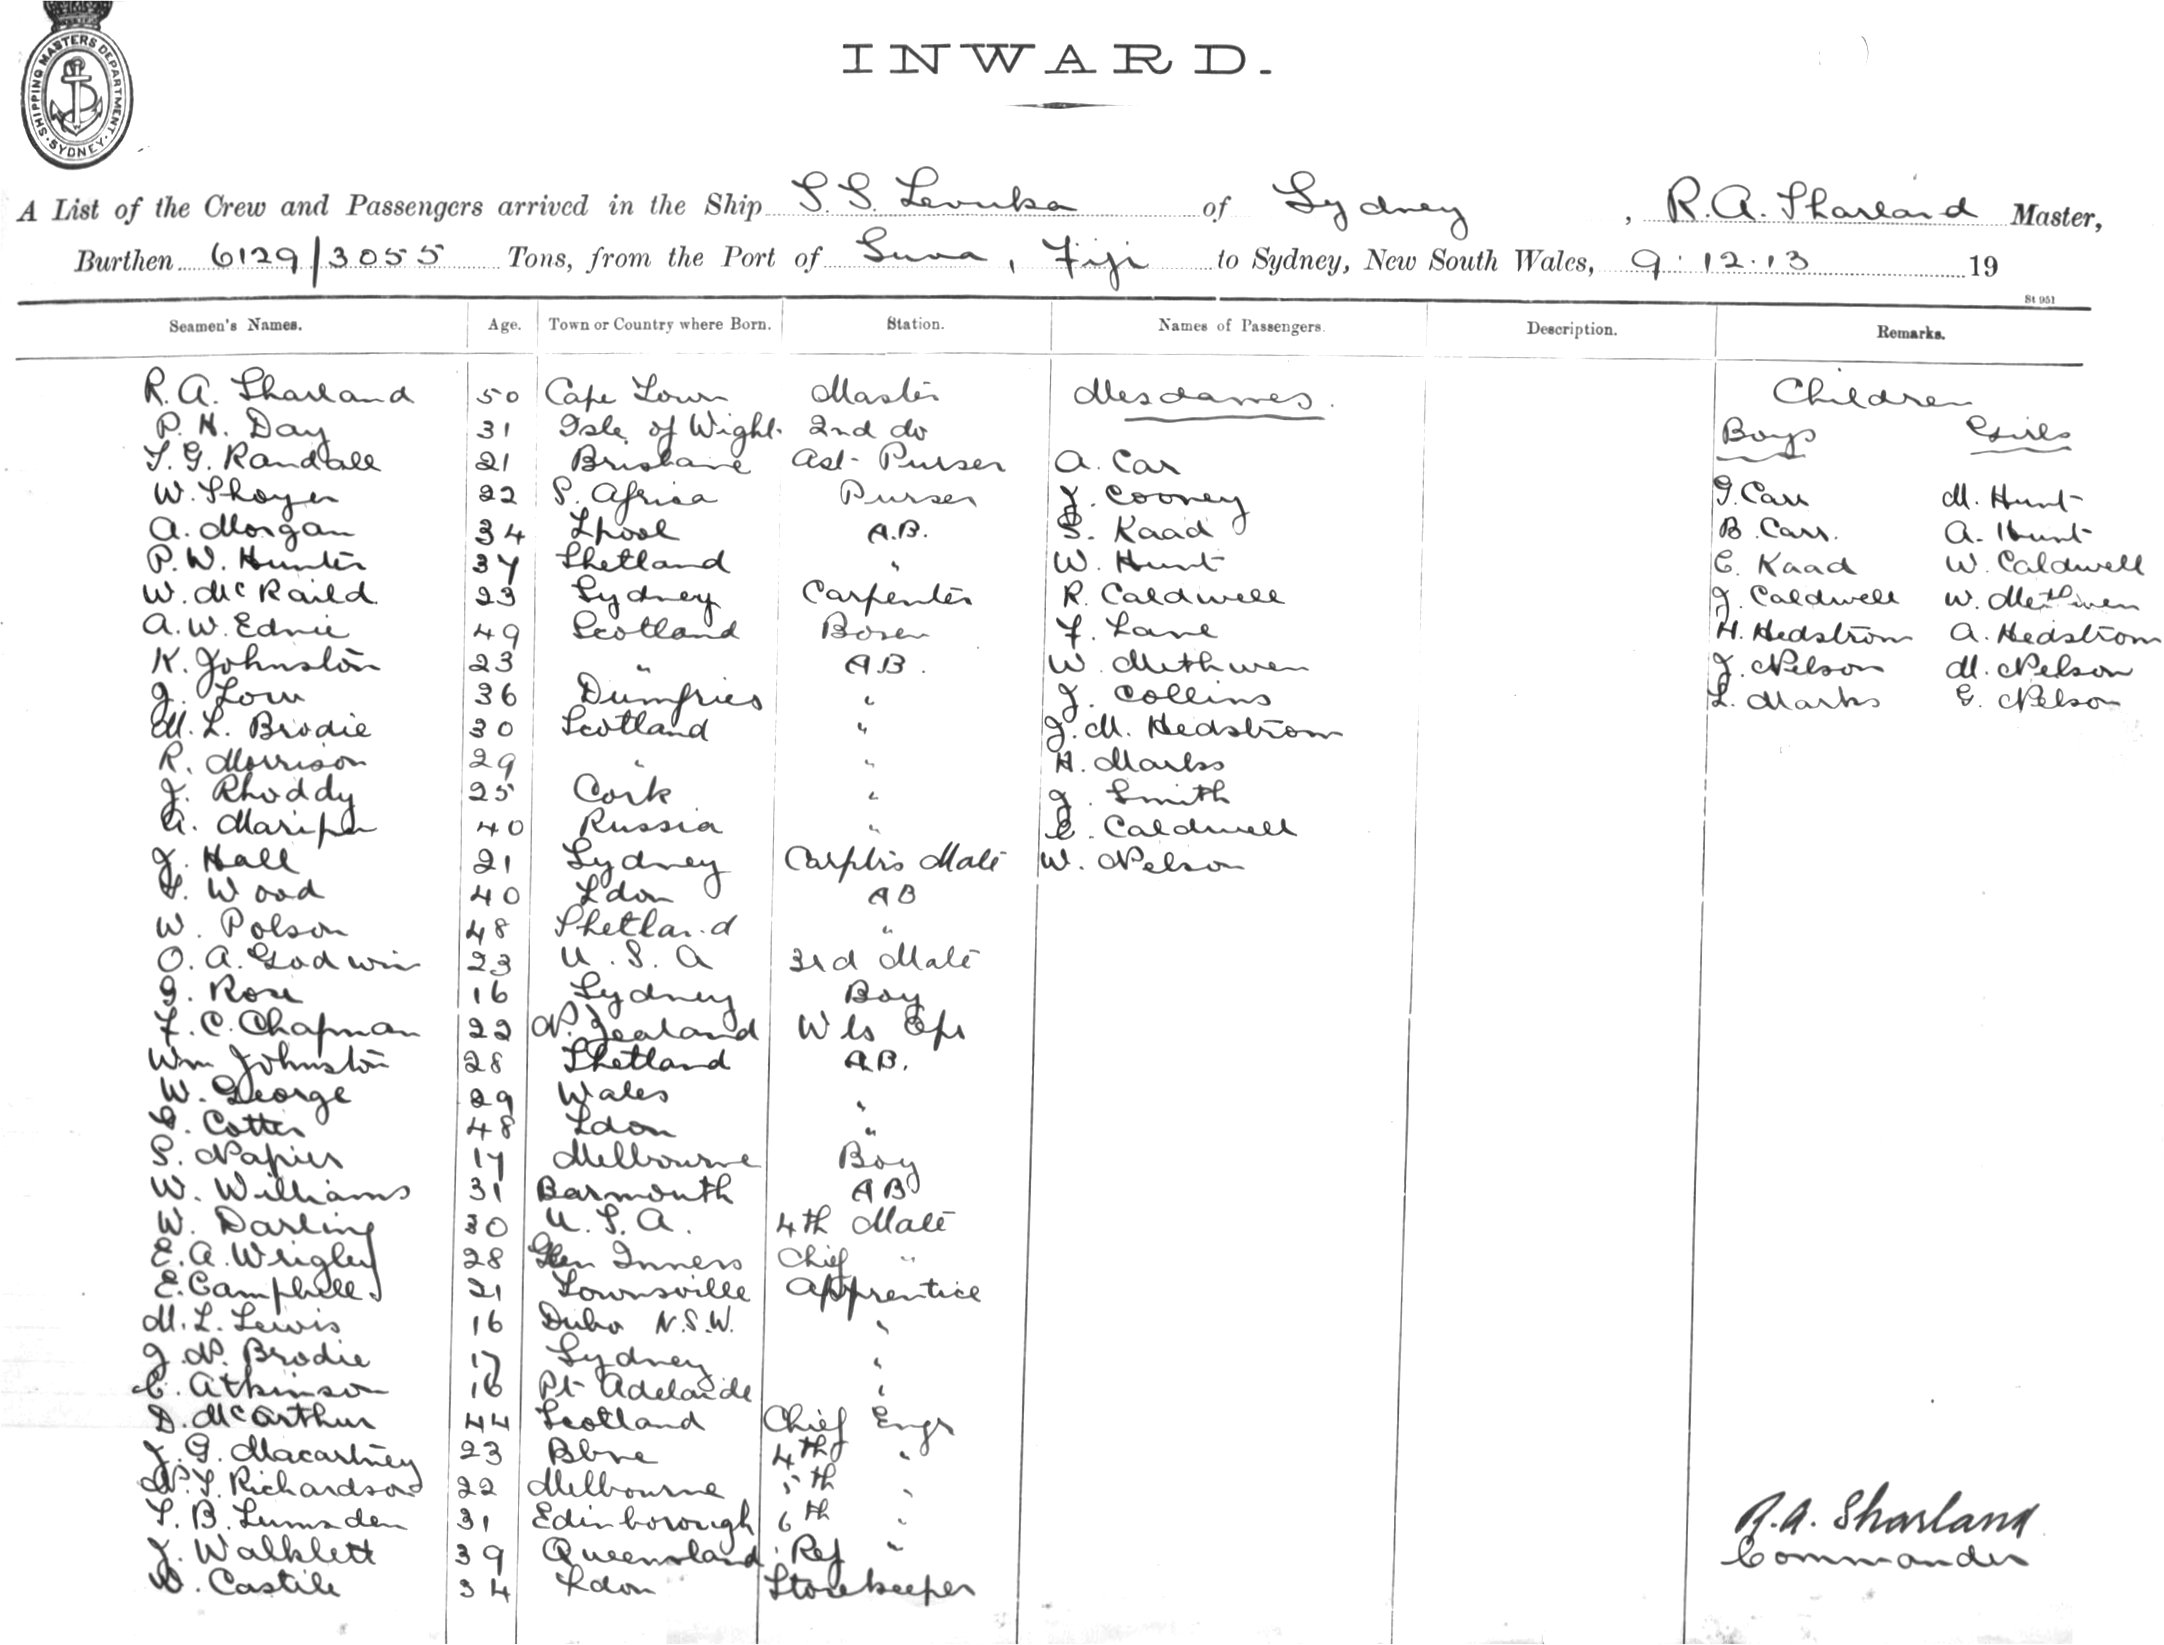 SHIPPING MASTERS DEPARTMENT. SYDNEY
INWARD.
A List of the Crew and Passengers arrived in the Ship S.S. Levuka of Sydney, R.A. Sharland Master,
Burthen 6129/3055 Tons, from the Port of Suva, Fiji to Sydney, New South Wales, 9.12.13 19
St 951
Seamen's Names. Age. Town or Country where Born. Station. Names of Passengers. Description. Remarks.
R. A. Sharland 50 Cape Town Master Mesdames. Children
P. H. Day 31 Isle of Wight. 2nd do Boys Girls
T. G. Randall 21 Brisbane Ast Purser A. Car
W. Thoyer 22 S. Africa Purser J. Cooney G. Carr M. Hunt
A. Morgan 34 Lpool A.B. S. Kaad B. Carr. A. Hunt
P. W. Hunter 37 Shetland " W. Hunt C. Kaad W. Caldwell
W. McRaild 23 Sydney Carpenter R. Caldwell J. Caldwell W. Methven
A. W. Ednie 49 Scotland Bosen F. Lane H. Hedstrom A. Hedstrom
K. Johnston 23 " AB. W. Methven J. Nelson M. Nelson
J. Low 36 Dumfries " J. Collins L. Marks G. Nelson
M. L. Brodie 30 Scotland " J. M. Hedstrom
R. Morrison 29 " " H. Marks
J. Rhoddy 25 Cork " J. Smith
A. 40 Russia " C. Caldwell
J. Hall 21 Sydney Carptrs Mate W. Nelson
T. Wood 40 Ldon AB
W. Polson 48 Shetland "
O. A. Godwin 23 U.S.A 3rd Mate
G. Rose 16 Sydney Boy
F. C. Chapman 22 N. Zealand Wls Opr
Wm Johnston 28 Shetland A.B.
W. George 29 Wales "
G. Cotter 48 Ldon "
S. Napier 17 Melbourne Boy
W. Williams 31 Barmouth AB
W. Darling 30 U.S.A. 4th Mate
E. A. Wrigley 28 Glen Inness Chief "
E. Campbell 21 Townsville Apprentice
M. L. Lewis 16 Dubo N.S.W. "
J. N. Brodie 17 Sydney "
C. Atkinson 16 Pt Adelaide "
D. McArthur 44 Scotland Chief Engr
J. G. Macartney 23 Bbne 4th "
N. T. Richardson 22 Melbourne 5th "
T. B. Lumsden 31 Edinborough 6th "
J. Walklett 39 Queensland Ref "
W. Castile 34 Ldon Storekeeper
R.A. Sharland
Commander